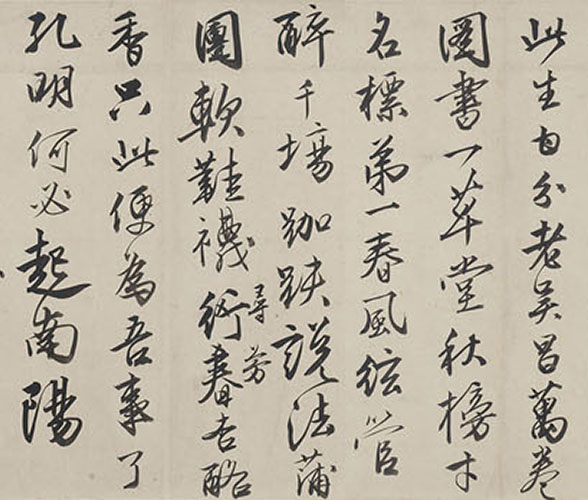 此生自分老吳昌萬卷
圖書一草堂秋榜才
名標第一春風絃管
醉千場跏趺說法蒲
尋芳
團軟鞋襪行春杏酪
香只此便為吾事了
孔明何必起南陽